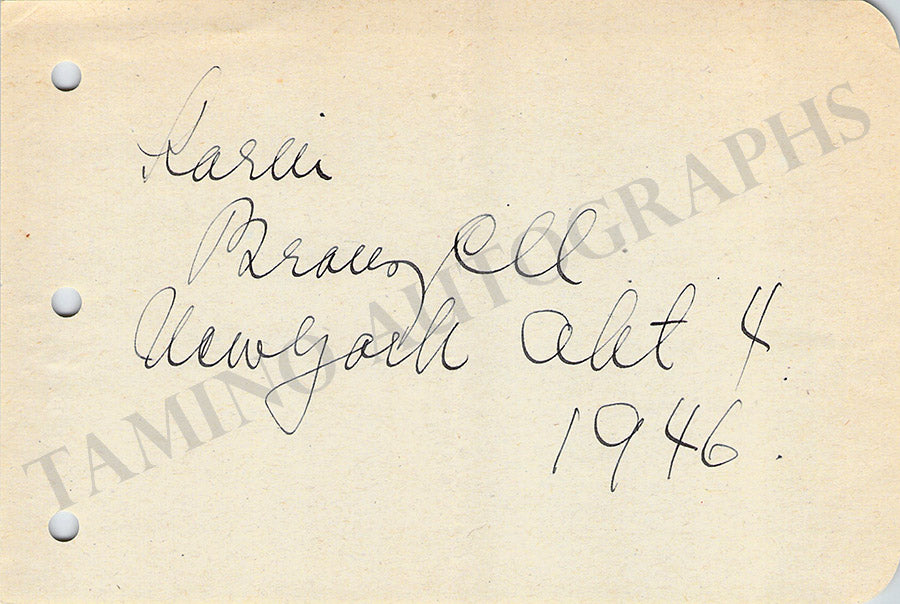 Karin
Branzell.
New York Okt 4.
1946.
TAMINO AUTOGRAPHS